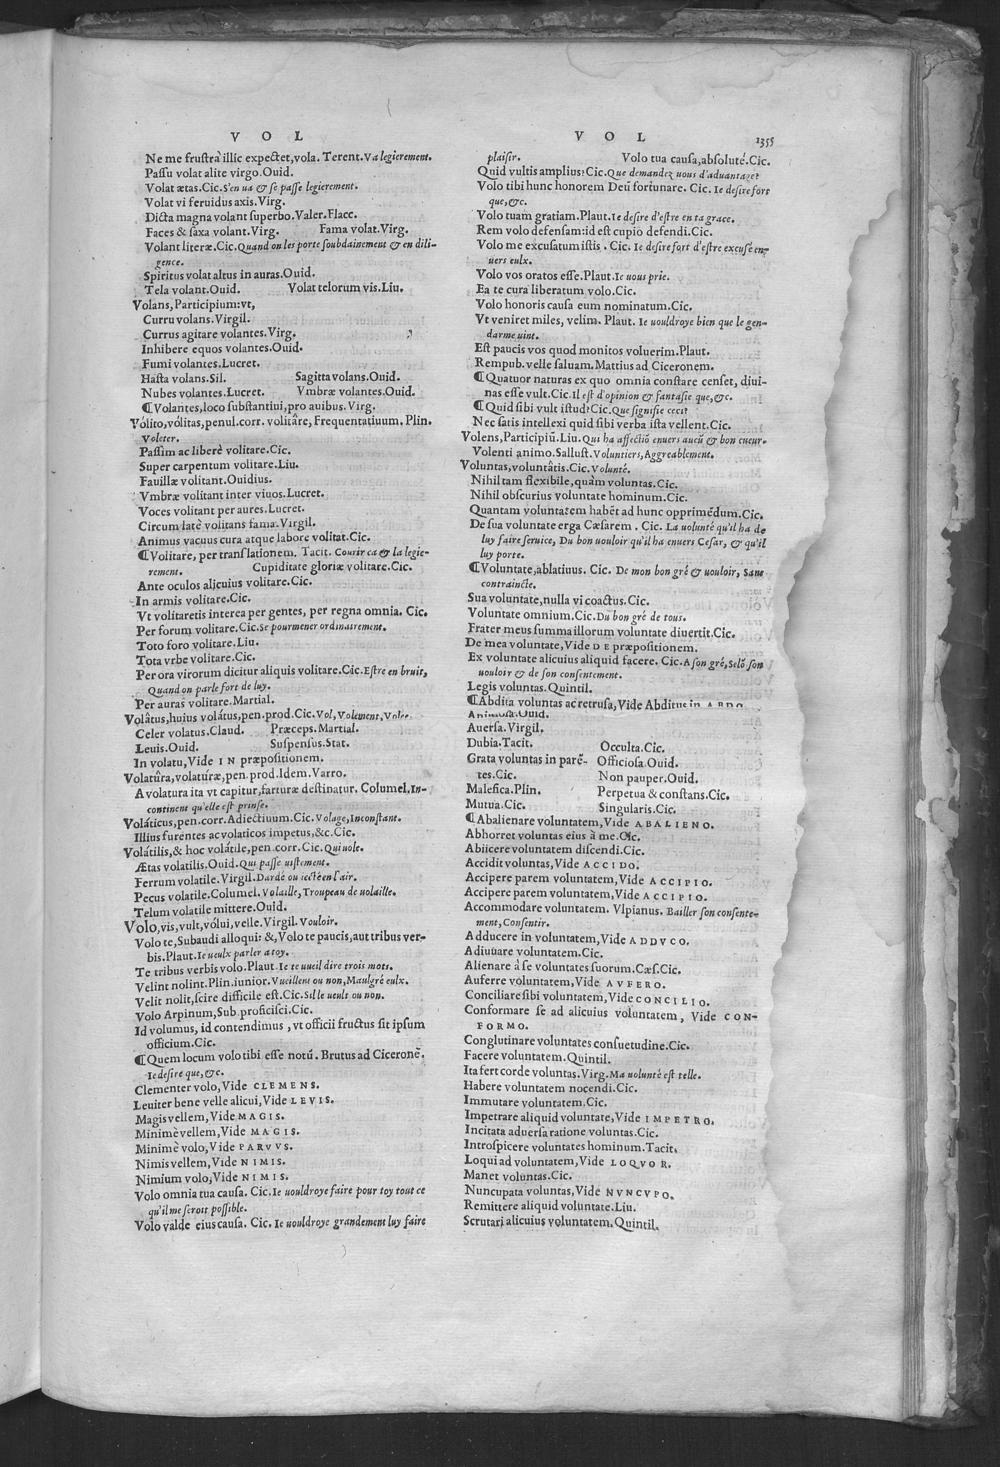 V O L
Ne me frustrà illic expectet, vola. Terent. Va legierement.
Passu volat alite virgo. Ouid.
Volat ætas. Cic. S'en ua & se passe legierement.
Volat vi feruidus axis. Virg.
Dicta magna volant superbo. Valer. Flacc.
Faces & saxa volant. Virg. Fama volat. Virg.
Volant literæ. Cic. Quand on les porte soubdainement & en dili-
gence.
Spiritus volat altus in auras. Ouid.
Tela volant. Ouid. Volat telorum vis. Liu.
Volans, Participium: vt,
Curru volans. Virgil.
Currus agitare volantes. Virg.
Inhibere equos volantes. Ouid.
Fumi volantes. Lucret.
Hasta volans. Sil. Sagitta volans. Ouid.
Nubes volantes. Lucret. Vmbræ volantes. Ouid.
¶ Volantes, loco substantiui, pro auibus. Virg.
Vólito, vólitas, penul. corr. volitâre, Frequentatiuum. Plin.
Voleter.
Passim ac liberè volitare. Cic.
Super carpentum volitare. Liu.
Fauillæ volitant. Ouidius.
Vmbræ volitant inter viuos. Lucret.
Voces volitant per aures. Lucret.
Circum latè volitans fama. Virgil.
Animus vacuus cura atque labore volitat. Cic.
¶ Volitare, per translationem. Tacit. Courir ca & la legie-
rement. Cupiditate gloriæ volitare. Cic.
Ante oculos alicuius volitare. Cic.
In armis volitare. Cic.
Vt volitaretis interea per gentes, per regna omnia. Cic.
Per forum volitare. Cic. Se pourmener ordinairement.
Toto foro volitare. Liu.
Tota vrbe volitare. Cic.
Per ora virorum dicitur aliquis volitare. Cic. Estre en bruit,
Quand on parle fort de luy.
Per auras volitare. Martial.
Volâtus, huius volátus, pen. prod. Cic. Vol, Volement, Volee
Celer volatus. Claud. Præceps. Martial.
Leuis. Ouid. Suspensus. Stat.
In volatu, Vide IN præpositionem.
Volatûra, volatúræ, pen. prod. Idem. Varro.
A volatura ita vt capitur, farturæ destinatur. Columel. In-
continent qu'elle est prinse.
Voláticus, pen. corr. Adiectiuum. Cic. Volage, Inconstant.
Illius furentes ac volaticos impetus, &c. Cic.
Volátilis, & hoc volátile, pen. corr. Cic. Qui uole.
Ætas volatilis. Ouid. Qui passe uistement.
Ferrum volatile. Virgil. Dardé ou iecté en l'air.
Pecus volatile. Columel. Volaille, Troupeau de uolaille.
Telum volatile mittere. Ouid.
Volo, vis, vult, vólui, velle. Virgil. Vouloir.
Volo te, Subaudi alloqui: &, Volo te paucis, aut tribus ver-
bis. Plaut. Ie ueulx parler a toy.
Te tribus verbis volo. Plaut. Ie te uueil dire trois mots.
Velint nolint. Plin. iunior. Vueillent ou non, Maulgré eulx.
Velit nolit, scire difficile est. Cic. Sil le ueult ou non.
Volo Arpinum, Sub proficisci. Cic.
Id volumus, id contendimus, vt officii fructus sit ipsum
officium. Cic.
¶ Quem locum volo tibi esse notū. Brutus ad Ciceronē.
Ie desire que, &c.
Clementer volo, Vide CLEMENS.
Leuiter bene velle alicui, Vide LEVIS.
Magis vellem, Vide MAGIS.
Minimè vellem, Vide MAGIS.
Minimè volo, Vide PARVVS.
Nimis vellem, Vide NIMIS.
Nimium volo, Vide NIMIS.
Volo omnia tua causa. Cic. Ie uouldroye faire pour toy tout ce
qu'il me seroit possible.
Volo valde eius causa. Cic. Ie uouldroye grandement luy faire
V O L 1355
plaisir. Volo tua causa, absolutè. Cic.
Quid vultis amplius? Cic. Que demandez uous d'aduantage?
Volo tibi hunc honorem Deū fortunare. Cic. Ie desire fort
que, &c.
Volo tuam gratiam. Plaut. Ie desire d'estre en ta grace.
Rem volo defensam: id est cupio defendi. Cic.
Volo me excusatum istis. Cic. Ie desire fort d'estre excusé en-
uers eulx.
Volo vos oratos esse. Plaut. Ie uous prie.
Ea te cura liberatum volo. Cic.
Volo honoris causa eum nominatum. Cic.
Vt veniret miles, velim. Plaut. Ie uouldroye bien que le gen-
darme uint.
Est paucis vos quod monitos voluerim. Plaut.
Rempub. velle saluam. Mattius ad Ciceronem.
¶ Quatuor naturas ex quo omnia constare censet, diui-
nas esse vult. Cic. Il est d'opinion & fantasie que, &c.
¶ Quid sibi vult istud? Cic. Que signifie ceci?
Nec satis intellexi quid sibi verba ista vellent. Cic.
Volens, Participiū. Liu. Qui ha affectiō enuers aucū & bon cueur.
Volenti animo. Sallust. Voluntiers, Aggreablement.
Voluntas, voluntâtis. Cic. Volunté.
Nihil tam flexibile, quàm voluntas. Cic.
Nihil obscurius voluntate hominum. Cic.
Quantam voluntatem habēt ad hunc opprimēdum. Cic.
De sua voluntate erga Cæsarem. Cic. La uolunté qu'il ha de
luy faire seruice, Du bon uouloir qu'il ha enuers Cesar, & qu'il
luy porte.
¶ Voluntate, ablatiuus. Cic. De mon bon gré & uouloir, Sans
contraincte.
Sua voluntate, nulla vi coactus. Cic.
Voluntate omnium. Cic. Du bon gré de tous.
Frater meus summa illorum voluntate diuertit. Cic.
De mea voluntate, Vide DE præpositionem.
Ex voluntate alicuius aliquid facere. Cic. A son gré, Selō son
uouloir & de son consentement.
Legis voluntas. Quintil.
¶ Abdita voluntas ac retrusa, Vide Abditus in
Animosa. Ouid.
Auersa. Virgil.
Dubia. Tacit. Occulta. Cic.
Grata voluntas in parē- Officiosa. Ouid.
tes. Cic. Non pauper. Ouid.
Malefica. Plin. Perpetua & constans. Cic.
Mutua. Cic. Singularis. Cic.
¶ Abalienare voluntatem, Vide ABALIENO.
Abhorret voluntas eius à me. Cic.
Abiicere voluntatem discendi. Cic.
Accidit voluntas, Vide ACCIDO.
Accipere parem voluntatem, Vide ACCIPIO.
Accipere parem voluntatem, Vide ACCIPIO.
Accommodare voluntatem. Vlpianus. Bailler son consente-
ment, Consentir.
Adducere in voluntatem, Vide ADDVCO.
Adiuuare voluntatem. Cic.
Alienare à se voluntates suorum. Cæs. Cic.
Auferre voluntatem, Vide AVFERO.
Conciliare sibi voluntatem, Vide CONCILIO.
Conformare se ad alicuius voluntatem, Vide CON-
FORMO.
Conglutinare voluntates consuetudine. Cic.
Facere voluntatem. Quintil.
Ita fert corde voluntas. Virg. Ma uolunté est telle.
Habere voluntatem nocendi. Cic.
Immutare voluntatem. Cic.
Impetrare aliquid voluntate, Vide IMPETRO.
Incitata aduersa ratione voluntas. Cic.
Introspicere voluntates hominum. Tacit.
Loqui ad voluntatem, Vide LOQVOR.
Manet voluntas. Cic.
Nuncupata voluntas, Vide NVNCVPO.
Remittere aliquid voluntate. Liu.
Scrutari alicuius voluntatem. Quintil.